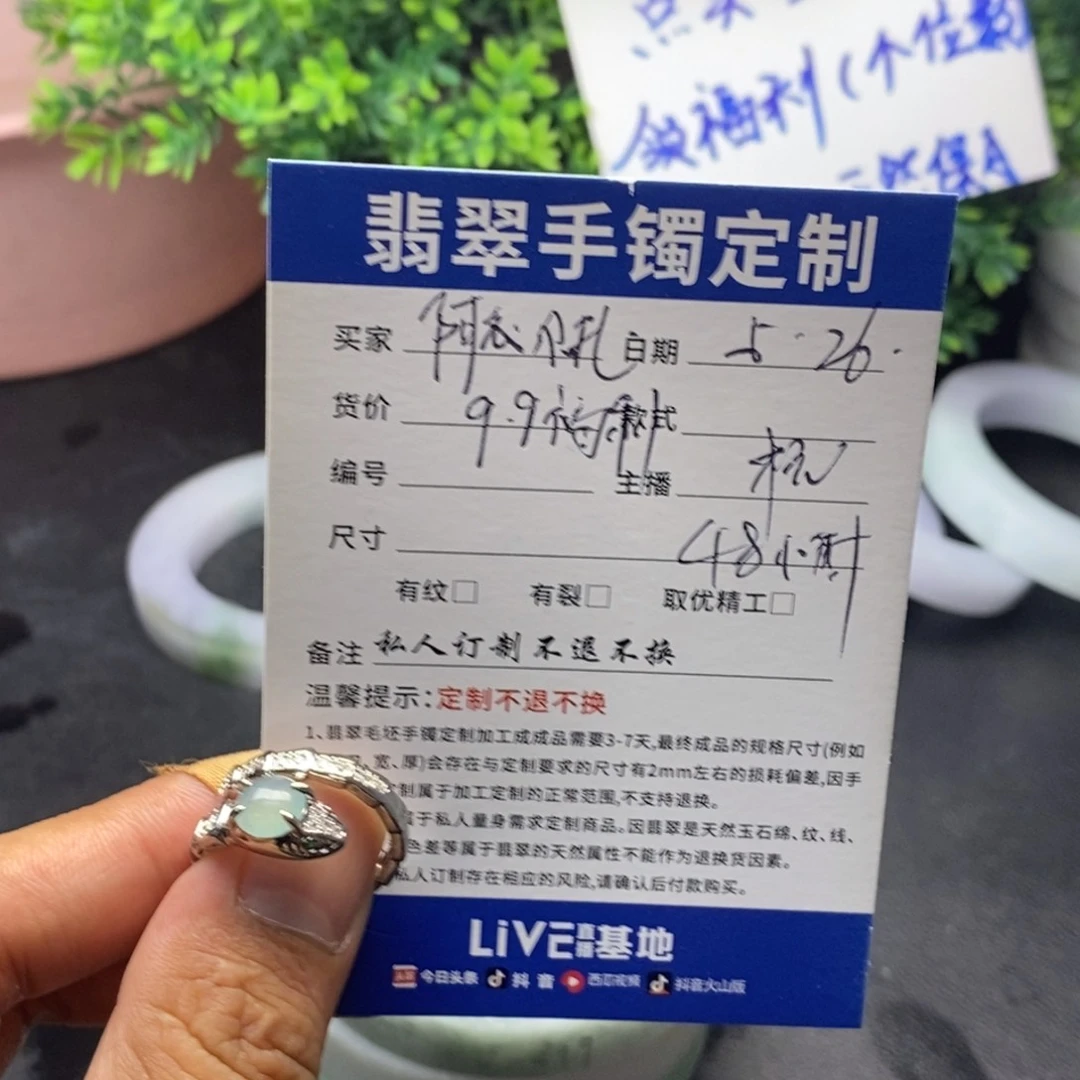 领福利(个位数
天然保A
翡翠手镯定制
买家 日期 5.26.
货价 9.9福利 款式
编号 主播
尺寸 48小时
有纹□ 有裂□ 取优精工□
备注 私人订制不退不换
温馨提示:定制不退不换
1、翡翠毛坯手镯定制加工成成品需要3-7天,最终成品的规格尺寸(例如
宽、厚)会存在与定制要求的尺寸有2mm左右的损耗偏差,因手
制属于加工定制的正常范围,不支持退换。
于私人量身需求定制商品。因翡翠是天然玉石绵、纹、线、
色差等属于翡翠的天然属性不能作为退换货因素。
私人订制存在相应的风险,请确认后付款购买。
LiVE直播基地
头条 今日头条 抖音 西瓜视频 抖音火山版